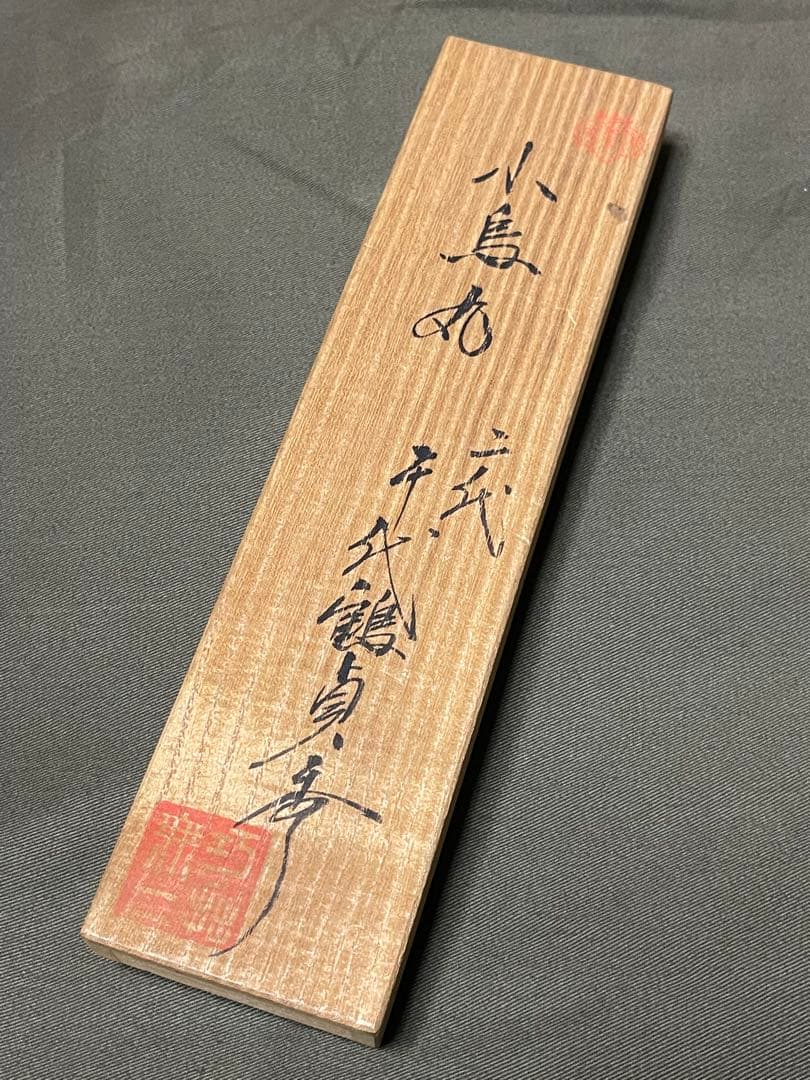 小烏丸
二代
千代鶴貞秀